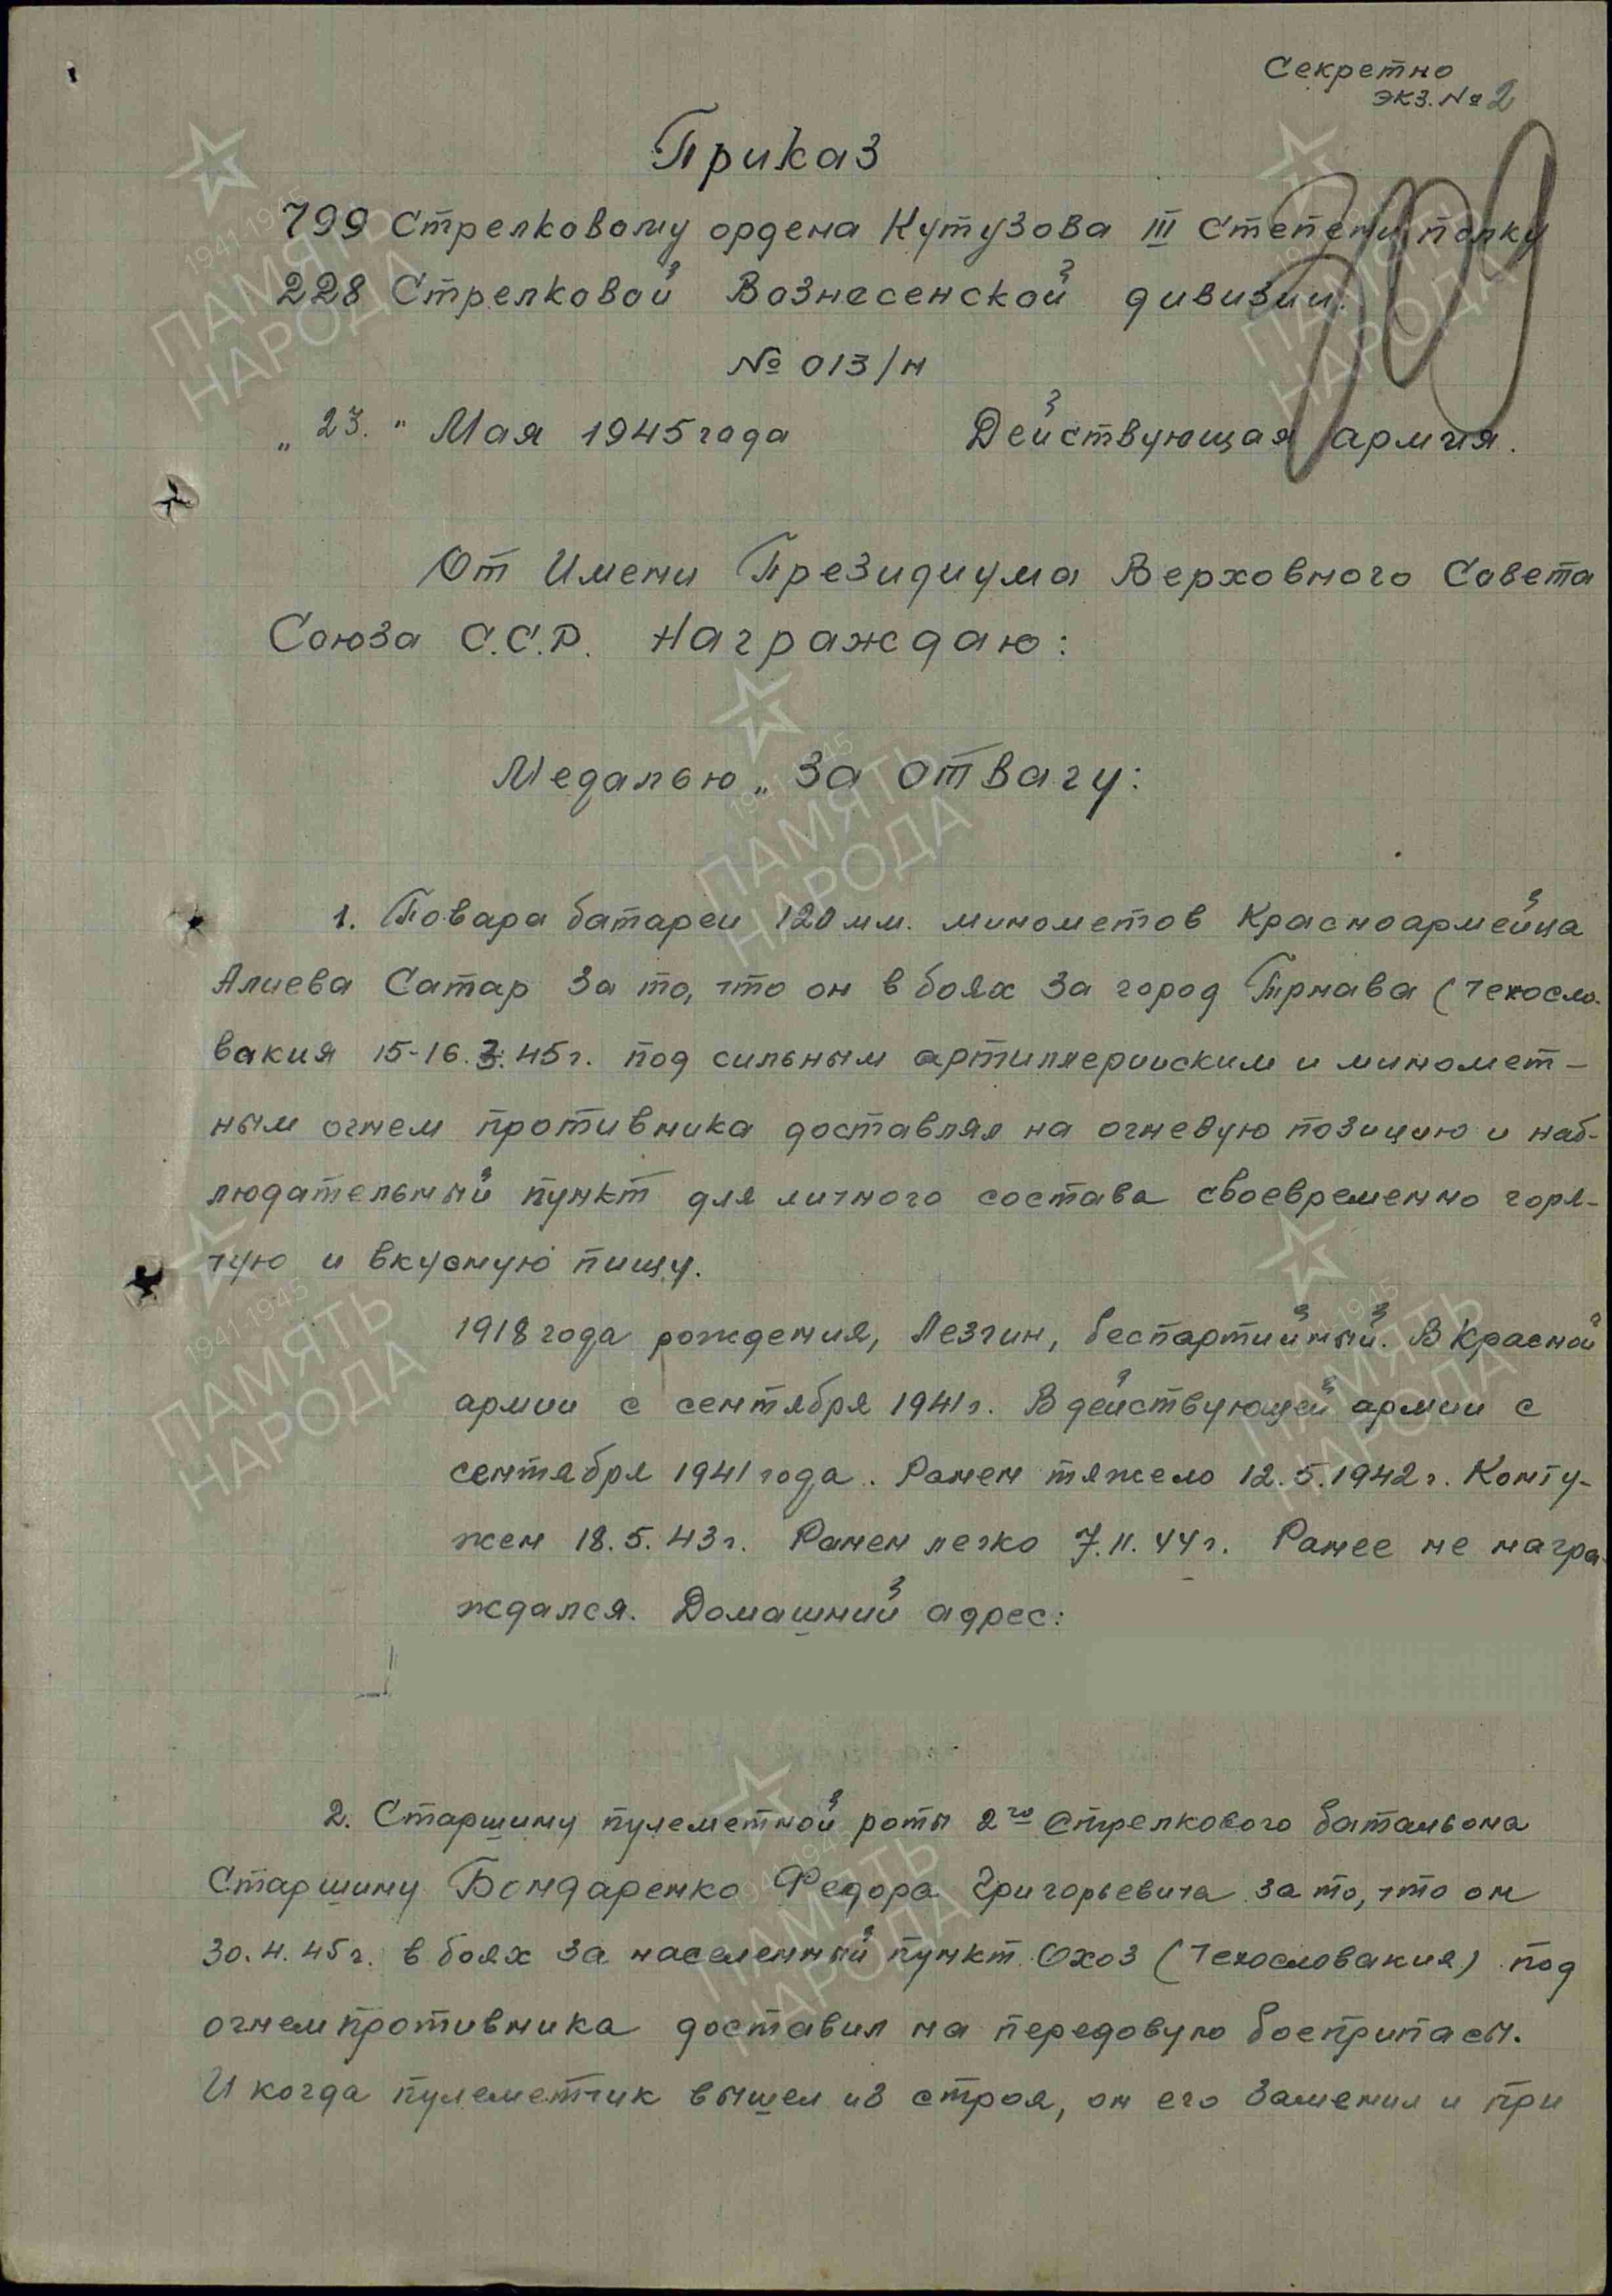 Секретно
экз. № 2
Приказ
799 Стрелковому ордена Кутузова III Степени полку
228 Стрелковой Вознесенской дивизии.
№ 013/н
„23." Мая 1945 года Действующая армия.
От Имени Президиума Верховного Совета
Союза С.С.Р. Награждаю:
Медалью „За отвагу:
1. Повара батареи 120 мм. минометов Красноармейца
Алиева Сатар за то, что он в боях за город Трнава (Чехосло-
вакия 15-16.3.45 г. под сильным артиллерииским и миномет-
ным огнем противника доставлял на огневую позицию и наб-
людательный пункт для личного состава своевременно горя-
чую и вкусную пищу.
1918 года рождения, Лезгин, беспартийный. В Красной
армии с сентября 1941 г. В действующей армии с
сентября 1941 года. Ранен тяжело 12.5.1942 г. Конту-
жен 18.5.43 г. Ранен легко 7.11.44 г. Ранее не награ-
ждался. Домашний адрес:
2. Старшину пулеметной роты 2го Стрелкового батальона
Старшину Бондаренко Федора Григорьевича за то, что он
30.4.45 г. в боях за населенный пункт Охоз (Чехословакия) под
огнем противника доставил на передовую боеприпасы.
И когда пулеметчик вышел из строя, он его заменил и при
1941 1945
ПАМЯТЬ
НАРОДА
1941 1945
ПАМЯТЬ
НАРОДА
1941 1945
ПАМЯТЬ
НАРОДА
1941 1945
ПАМЯТЬ
НАРОДА
1941 1945
ПАМЯТЬ
НАРОДА
1941 1945
ПАМЯТЬ
НАРОДА